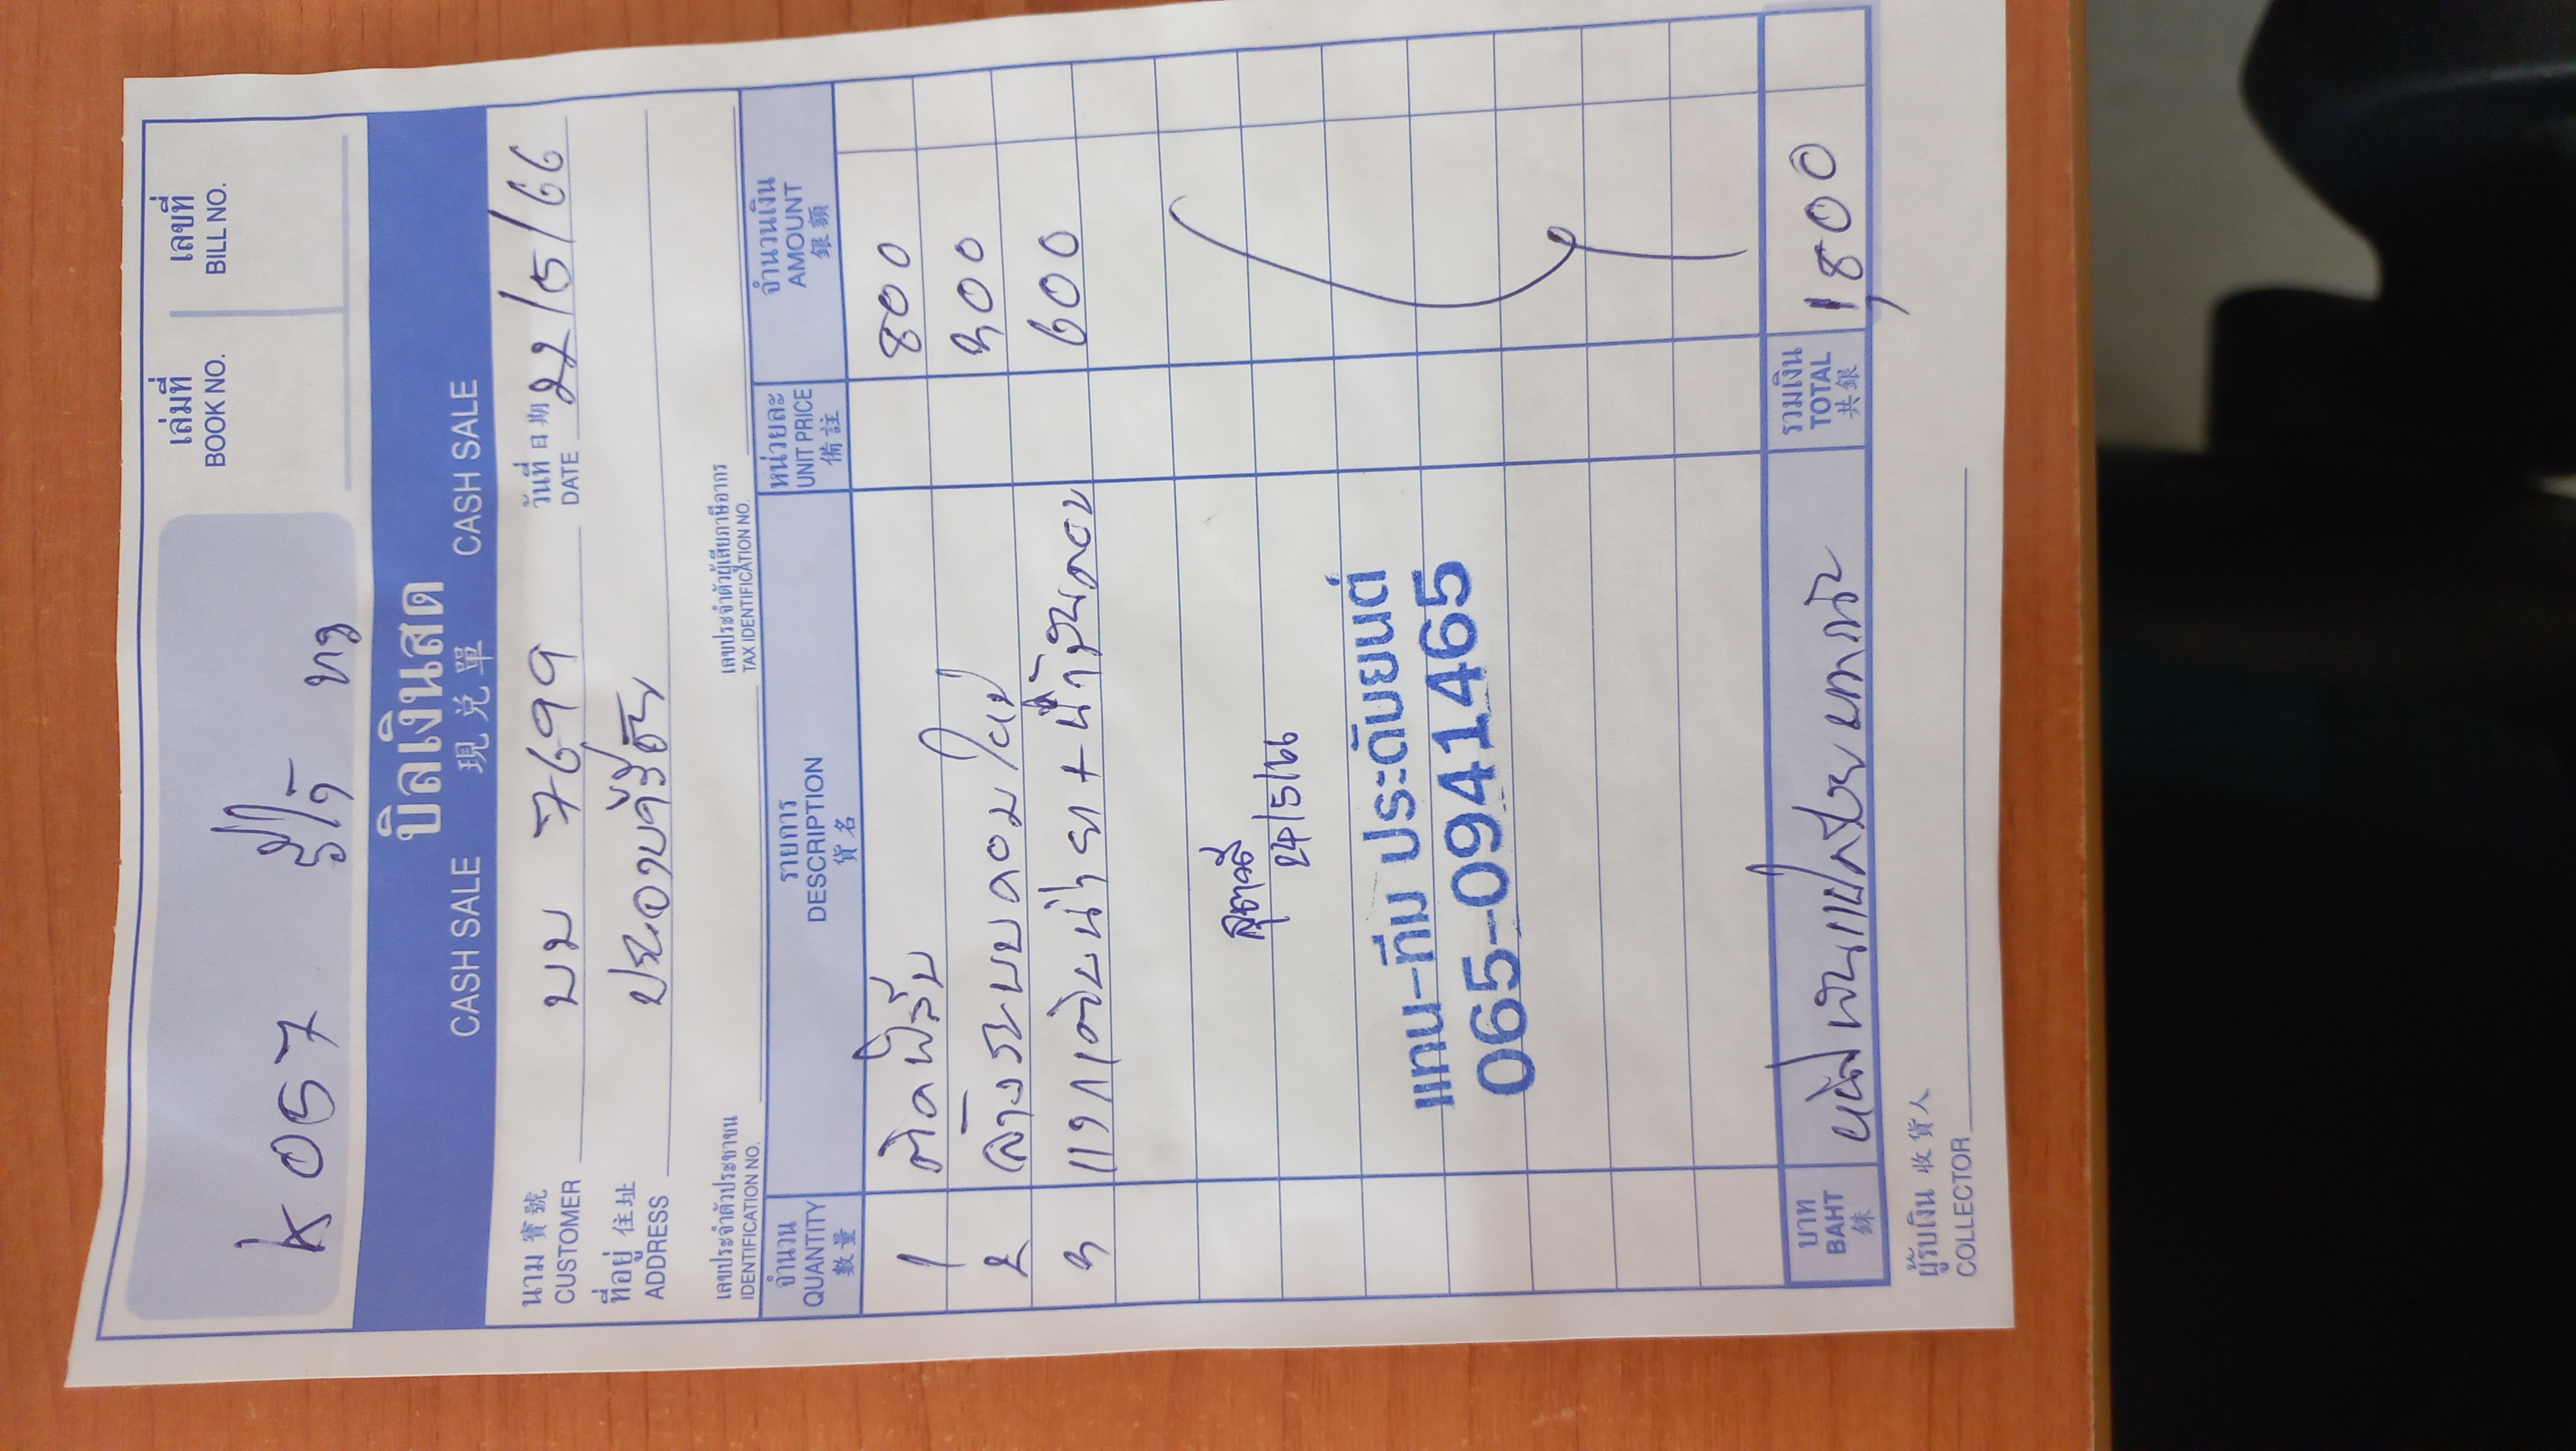 K 057
เล่มที่ เลขที่
BOOK NO. BILL NO.
บิลเงินสด
CASH SALE 現兌單 CASH SALE
นาม 寳號 บม 7699 วันที่ 日期 22/05/66
CUSTOMER DATE
ที่อยู่ 住址
ADDRESS
เลขประจำตัวประชาชน เลขประจำตัวผู้เสียภาษีอากร
IDENTIFICATION NO. TAX IDENTIFICATION NO.
จำนวน รายการ หน่วยละ จำนวนเงิน
QUANTITY DESCRIPTION UNIT PRICE AMOUNT
數量 貨名 備註 銀額
1 ติดฟิล์ม 800
๒ ล้างระบบดอม ใหม่ ๓00
๓ 600
24/5/66
แทน-ทีม ประดับยนต์
065-0941465
บาท หนึ่งพันแปดร้อยบาทถ้วน รวมเงิน 1,800
BAHT TOTAL
銖 共銀
ผู้รับเงิน 收貨人
COLLECTOR